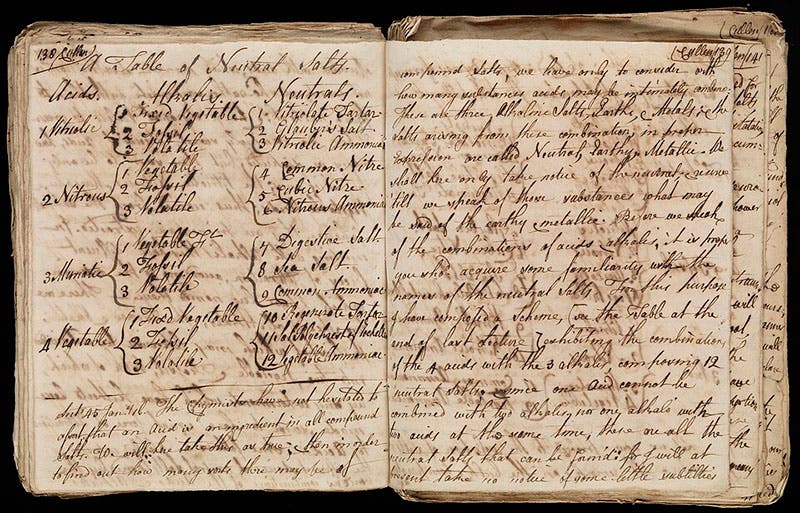 138 Cullen
A Table of Neutral Salts
Acids. Alkalis. Neutrals
1 Vitriolic 1 Fixed Vegetable 1 Vitriolate Tartar
2 Fossil 2 Glaubers Salt
3 Volatile 3 Vitriolic Ammoniac
2 Nitrous 1 Vegetable 4 Common Nitre
2 Fossil 5 Cubic Nitre
3 Volatile 6 Nitrous Ammoniac
3 Muriatic 1 Vegetable 7 Digestive Salt
2 Fossil 8 Sea Salt
3 Volatile 9 Common Ammoniac
4 Vegetable 1 Fixed Vegetable 10 Regenerate Tartar
2 Fossil 11 Rochelle
3 Volatile 12 Vegetable Ammoniac
Lect. 45 The Chymists have not hesitated to
assert that an Acid is an ingredient in all compound
salts. We will take this as true; then in order
to find out how many sorts there may be of
Cullen 139
compound Salts, we have only to consider with
how many substances acids may be intimately combined.
These are three Alkaline Salts, Earths, Metals & the
salts arising from these combinations in proper
expression are called Neutral, Earthy & Metallic. We
shall here only take notice of the neutral & reserve
till we speak of those substances what may
be said of the earthy & metallic. Before we speak
of the combinations of acids & alkalis, it is proper
you shod acquire some familiarity with the
names of the neutral Salts. For this purpose
I have composed a Scheme, (see the Table at the
end of last Lecture) exhibiting the combinations
of the 4 acids with the 3 Alkalis, composing 12
neutral salts. Since one Acid cannot be
combined with two alkalis, nor one alkali with
two acids at the same time, these are all the
neutral Salts that can be found: for I will at
present take no notice of some little subtilties
Cullen
141